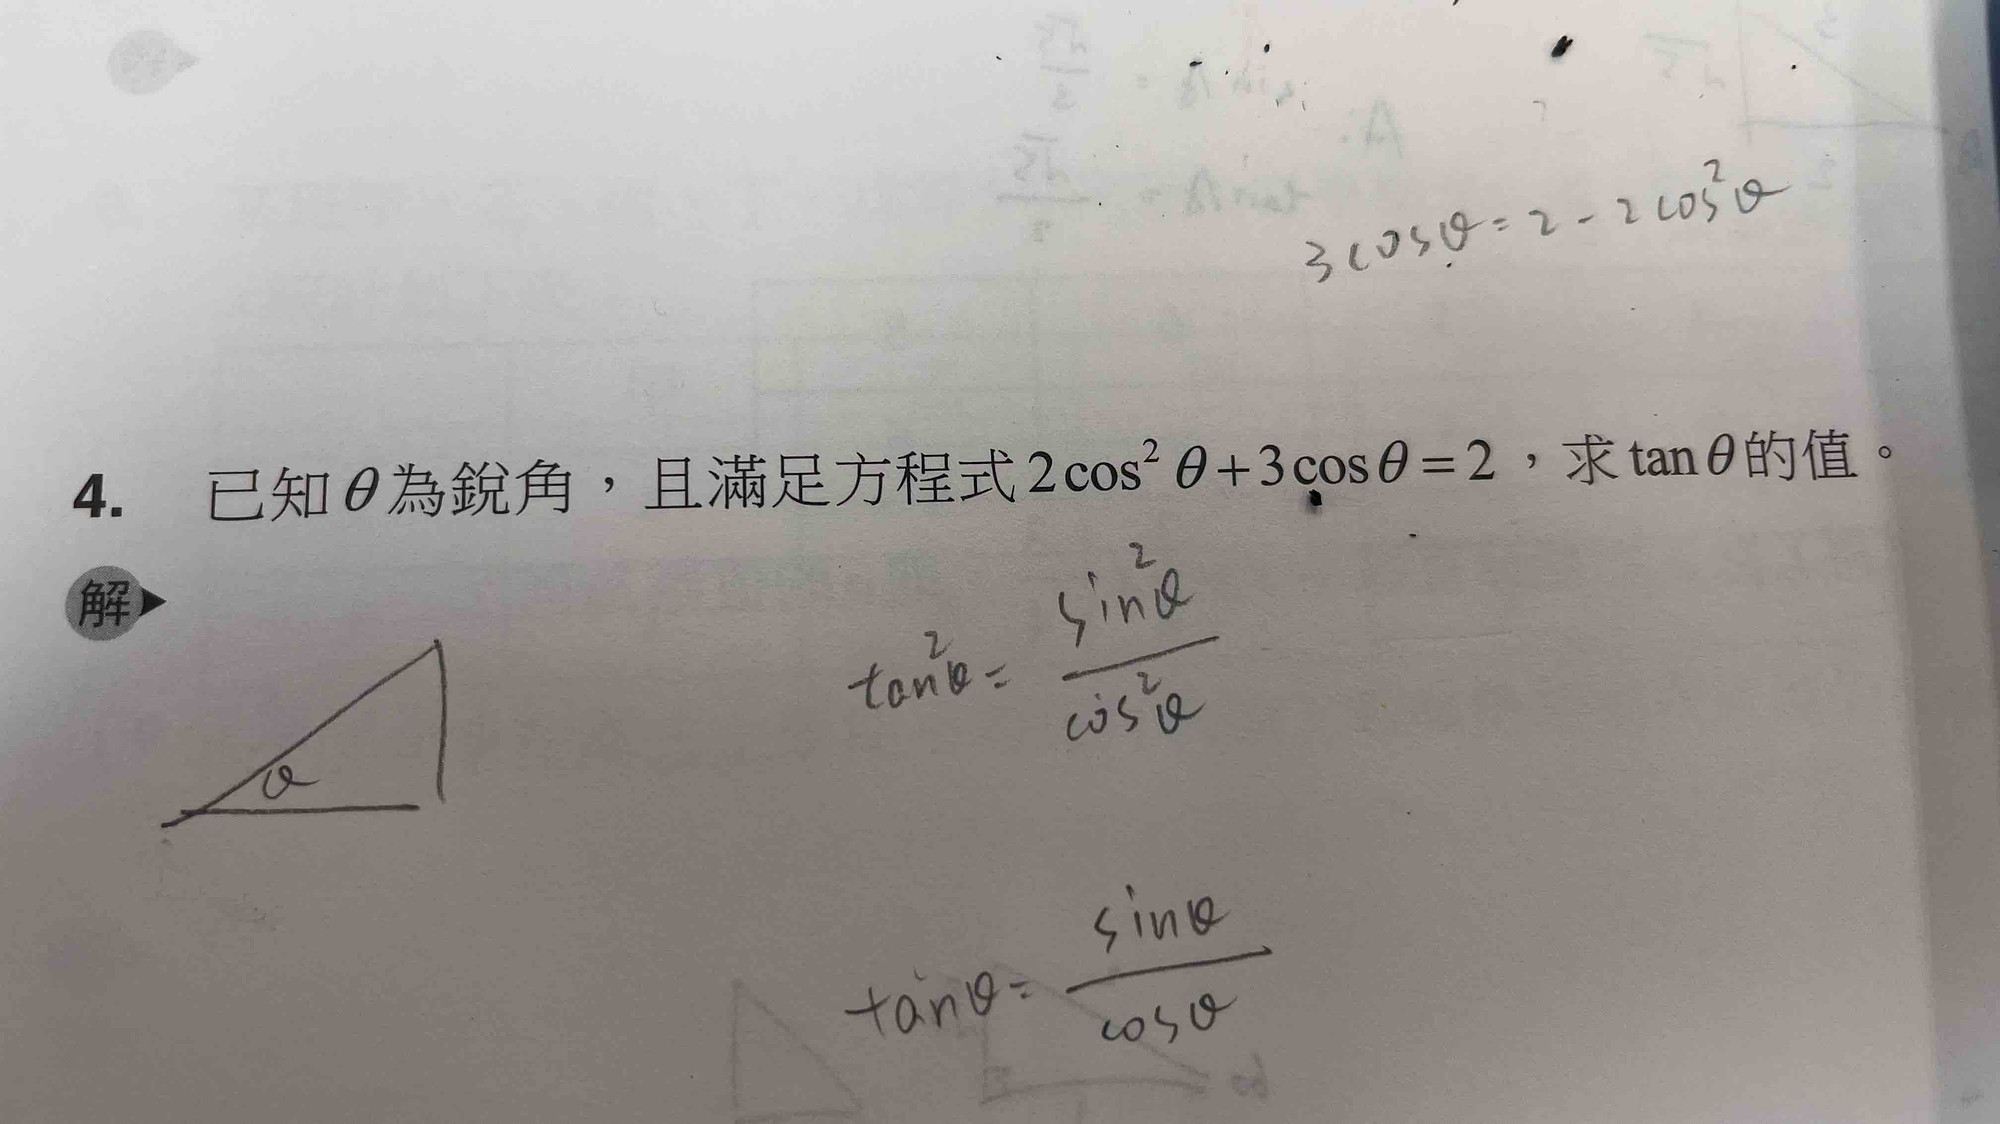 3cosθ=2-2cos²θ
4. 已知θ為銳角，且滿足方程式2cos²θ+3cosθ=2，求tanθ的值。
解
tan²θ= sin²θ / cos²θ
θ
tanθ= sinθ / cosθ